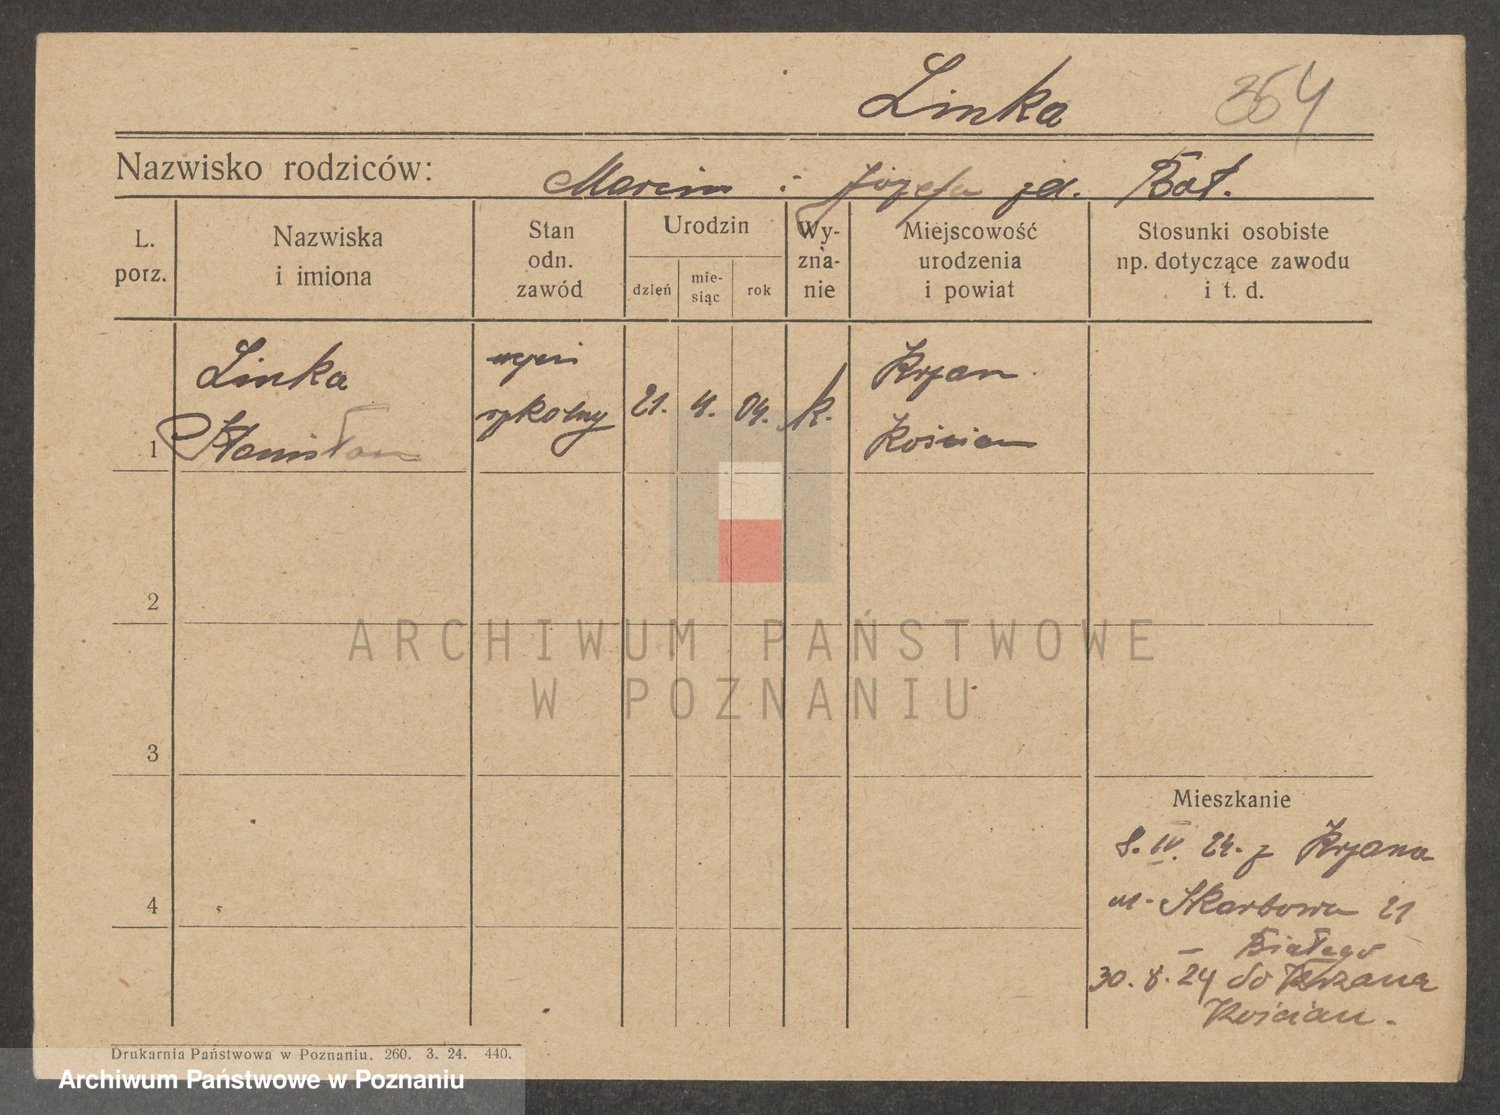 Linka 354
Nazwisko rodziców: Marcin i Józefa zd. Bał.
L. porz.
Nazwiska i imiona
Stan odn. zawód
Urodzin
dzień
mie- siąc
rok
Wy- zna- nie
Miejscowość urodzenia i powiat
Stosunki osobiste np. dotyczące zawodu i t. d.
Linka
szkolny
21. 4. 04. k.
Krzan
1 Stanisław
Kościan
2
ARCHIWUM PAŃSTWOWE
W POZNANIU
3
Mieszkanie
8. IV. 24. z Krzana
4
Skarbowa 21
– Białego
30. 8. 24 do Krzana
Kościan.
Drukarnia Państwowa w Poznaniu. 260. 3. 24. 440.
Archiwum Państwowe w Poznaniu